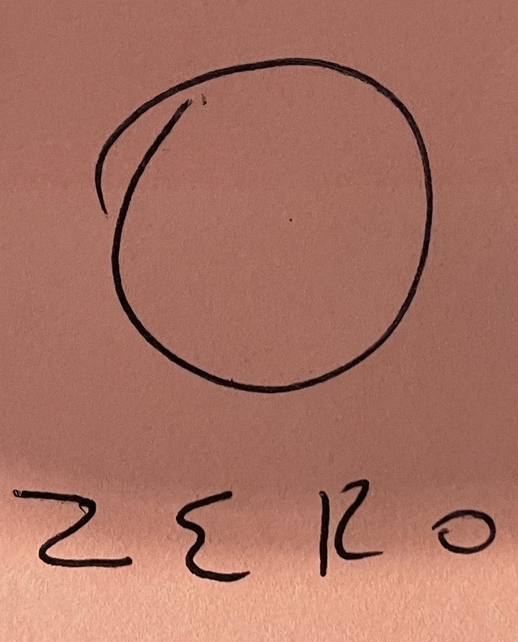 0
ZERO